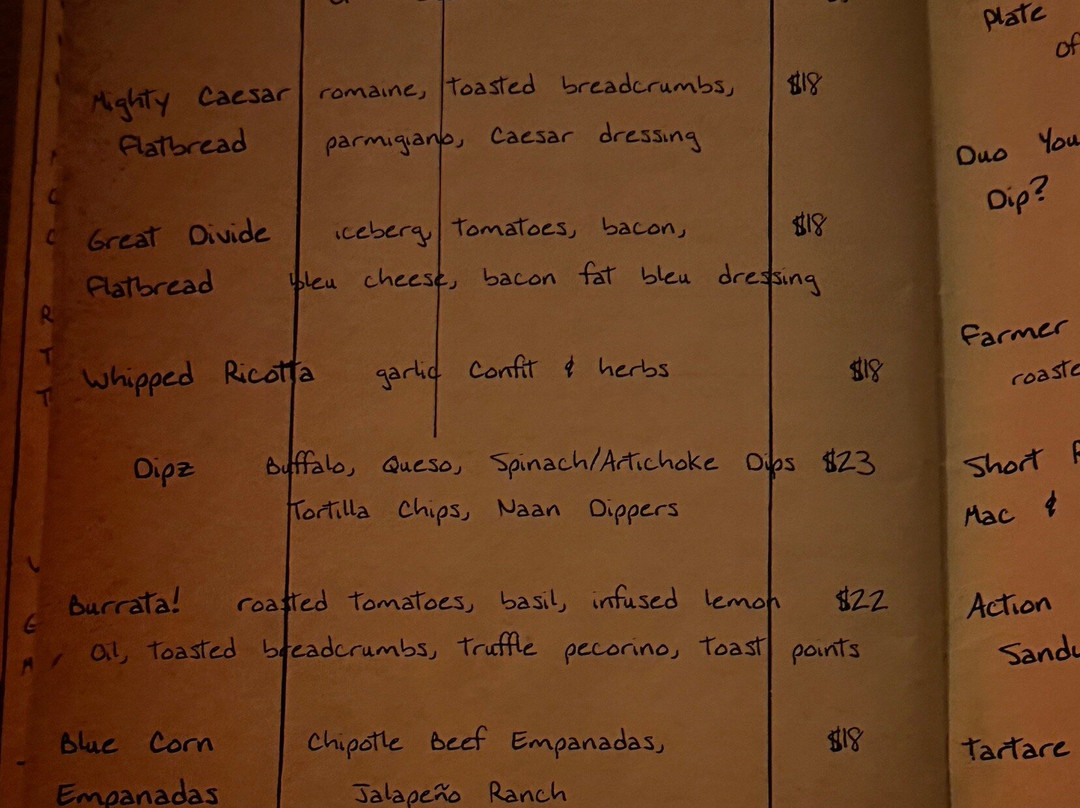 Mighty Caesar romaine, toasted breadcrumbs, $18
Flatbread parmigiano, Caesar dressing
Great Divide iceberg, tomatoes, bacon, $18
Flatbread bleu cheese, bacon fat bleu dressing
Whipped Ricotta garlic confit & herbs $18
Dipz Buffalo, Queso, Spinach/Artichoke Dips $23
Tortilla Chips, Naan Dippers
Burrata! roasted tomatoes, basil, infused lemon $22
oil, toasted breadcrumbs, truffle pecorino, toast points
Blue Corn Chipotle Beef Empanadas, $18
Empanadas Jalapeño Ranch
Plate
of
Duo You
Dip?
Farmer
roaste
Short
Mac &
Action
Sandu
Tartare